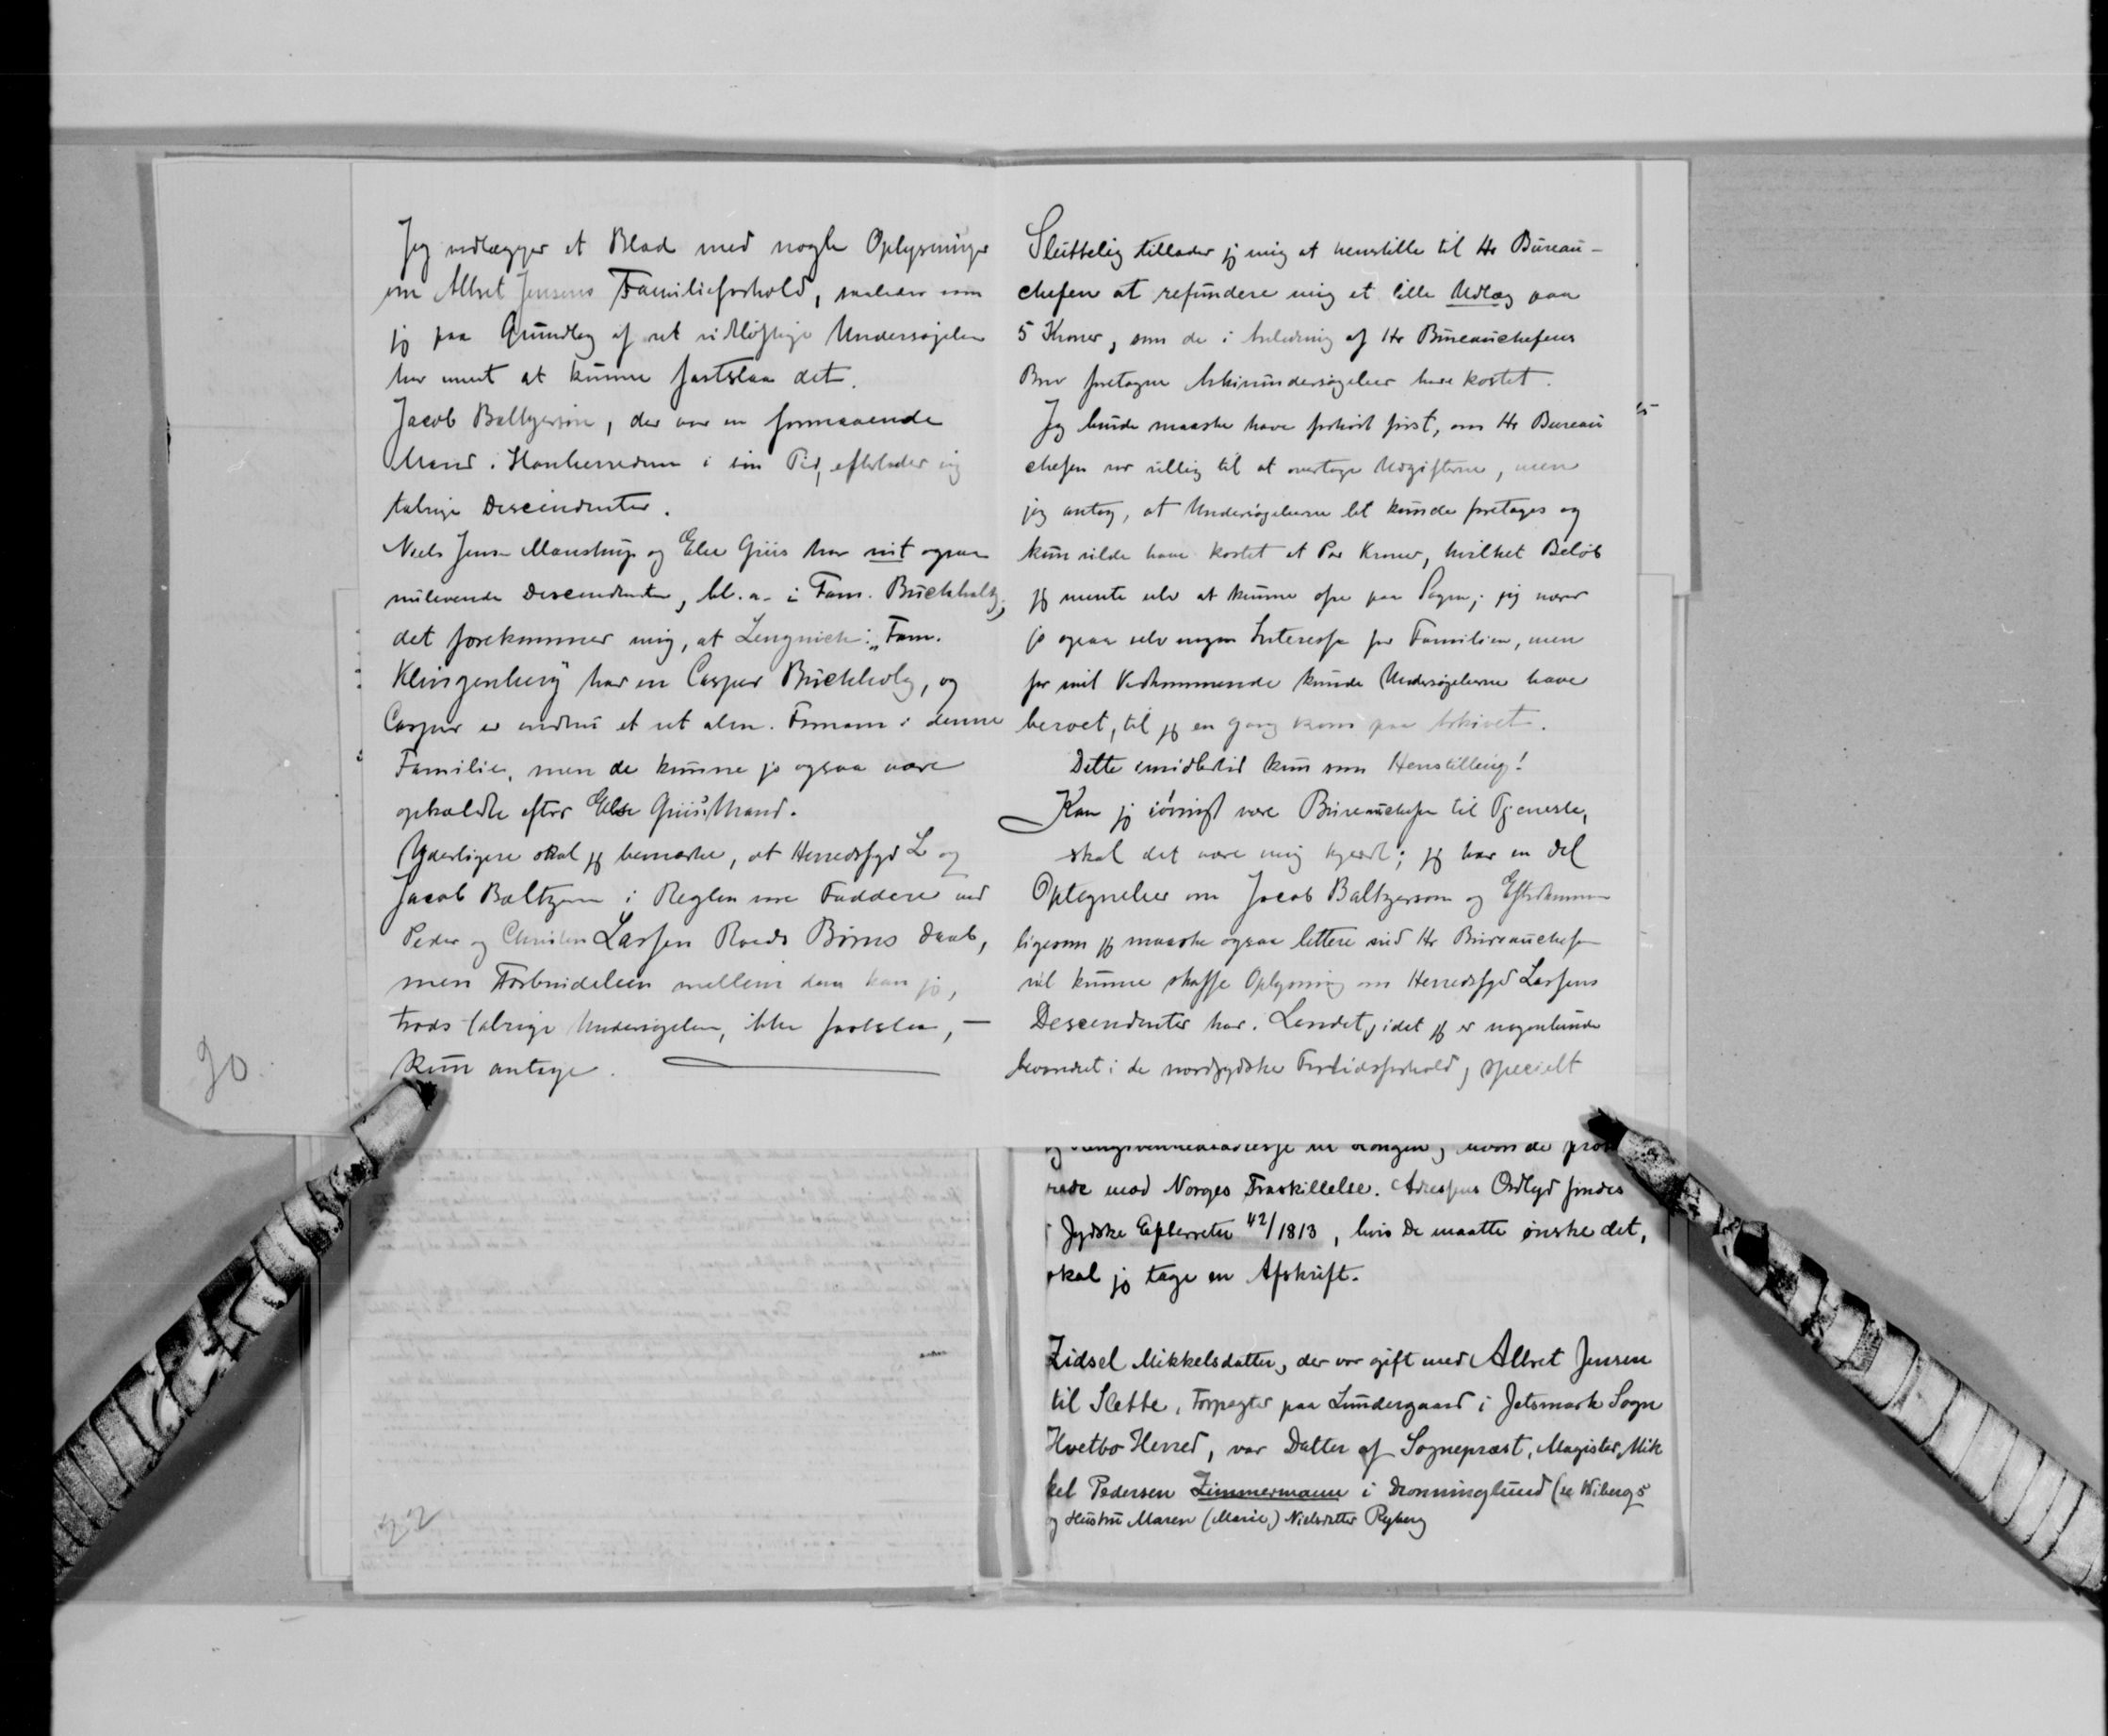 Jeg vedlægger et Blad med nogle Oplysninger
om Albret Jensens Familieforhold, saaledes som
jeg paa Grundlag af ret vidtløftige Undersøgelser
har ment at kunne fastslaa det.
Jacob Baltzersøn, der var en formaaende
Mand i Hanherrederne i sin Tid, efterlader sig
talrige Descendenter.
Niels Jensen Manstrup og Else Griis har vist ogsaa
nulevende Descendenter, bl. a. i Fam. Buchholtz;
det forekommer mig, at Lengnick: "Fam.
Klingenberg" har en Casper Buchholtz, og
Casper er endnu et ret alm. Fornavn i denne
Familie, men de kunne jo ogsaa være
opkaldte efter Else Griis' Mand.
Yderligere skal jeg bemærke, at Herredsfgd L. og
Jacob Baltzersen i Reglen vare Faddere ved
Peder og Christen Lassen Roeds Børns Daab,
men Forbindelsen mellem dem kan jeg,
trods talrige Undersøgelser, ikke fastslaa, —
kun antage.
20
Sluttelig tillader jeg mig at henstille til Hr Bureau-
chefen at refundere mig et lille Udlæg paa
5 Kroner, som de i Anledning af Hr Bureauchefens
Brev foretagne Arkivundersøgelser have kostet.
Jeg burde maaske have forhørt først, om Hr Bureau
chefen var villig til at overtage Udgifterne, men
jeg antog, at Undersøgelserne let kunde foretages og
kun vilde have kostet et Par Kroner, hvilket Beløb
jeg mente selv at kunne ofre paa Sagen; jeg nærer
jo ogsaa selv nogen Interesse for Familien, men
for mit Vedkommende kunde Undersøgelserne have
beroet, til jeg en Gang kom paa Arkivet.
Dette imidlertid kun som Henstilling!
Kan jeg iøvrigt være Bureauchefen til Tjeneste,
skal det være mig kjært; jeg har en Del
Optegnelser om Jacob Baltzersøn og Efterkommere
ligesom jeg maaske ogsaa lettere end Hr Bureauchefen
vil kunne skaffe Oplysning om Herredsfgd Lassens
Descendenter her i Landet, idet jeg er nogenlunde
bevandret i de nordjydske Fortidsforhold, specielt
til Kongen, hvori de prote
rede mod Norges Fraskillelse. Adressens Ordlyd findes
i Jydske Efterretn 42/1813, hvis De maatte ønske det,
skal jeg tage en Afskrift.
Zidsel Mikkelsdatter, der var gift med Albret Jensen
til Slette, Forpagter paa Lundergaard i Jetsmark Sogn
Hvetbo Herred, var Datter af Sognepræst, Magister Mik
kel Pedersen Zimmermann i Dronninglund (se Wibergs
og Hustru Maren (Marie) Nielsdatter Ryberg
22